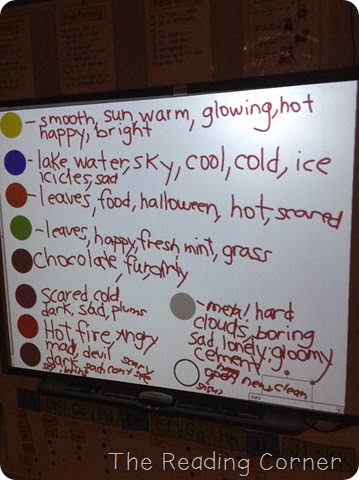 - smooth, sun, warm, glowing, hot
happy, bright
- lake, water, sky, cool, cold, ice
icicles, sad
- leaves, food, halloween, hot, scared
- leaves, happy, fresh, mint, grass
Chocolate, fur, dirty
Scared, cold,
dark, sad, plums
Hot fire, angry
mad, devil
dark
sad
- metal, hard
clouds, boring
sad, lonely, gloomy
cement
new, clean
The Reading Corner